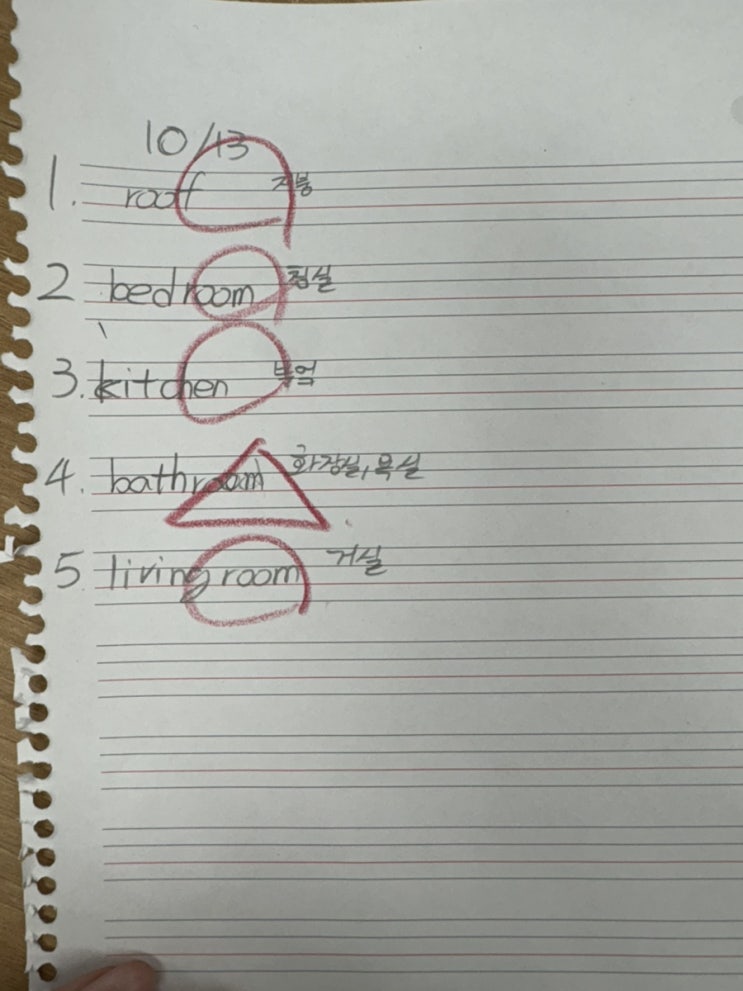 10/13
1. roof 지붕
2 bedroom 침실
3. kitchen 부엌
4. bathroom 화장실, 욕실
5. living room 거실